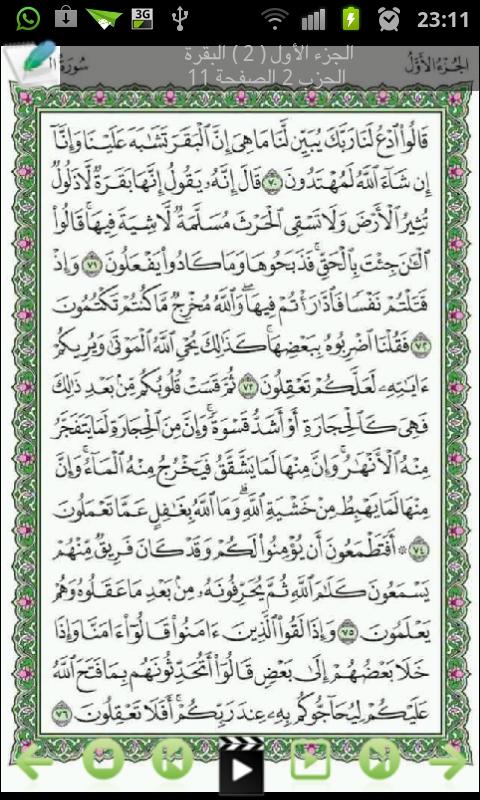 3G
23:11
سورة ال
الجزء الأول ( 2 ) البقرة
الجزء الأول
الحزب 2 الصفحة 11
قَالُوا۟ ٱدْعُ لَنَا رَبَّكَ يُبَيِّن لَّنَا مَا هِىَ إِنَّ ٱلْبَقَرَ تَشَٰبَهَ عَلَيْنَا وَإِنَّآ
إِن شَآءَ ٱللَّهُ لَمُهْتَدُونَ ٧٠ قَالَ إِنَّهُۥ يَقُولُ إِنَّهَا بَقَرَةٌ لَّا ذَلُولٌ
تُثِيرُ ٱلْأَرْضَ وَلَا تَسْقِى ٱلْحَرْثَ مُسَلَّمَةٌ لَّا شِيَةَ فِيهَا ۚ قَالُوا۟
ٱلْـَٰٔنَ جِئْتَ بِٱلْحَقِّ ۚ فَذَبَحُوهَا وَمَا كَادُوا۟ يَفْعَلُونَ ٧١ وَإِذْ
قَتَلْتُمْ نَفْسًا فَٱدَّٰرَْٰٔتُمْ فِيهَا ۖ وَٱللَّهُ مُخْرِجٌ مَّا كُنتُمْ تَكْتُمُونَ
٧٢ فَقُلْنَا ٱضْرِبُوهُ بِبَعْضِهَا ۚ كَذَٰلِكَ يُحْىِ ٱللَّهُ ٱلْمَوْتَىٰ وَيُرِيكُمْ
ءَايَٰتِهِۦ لَعَلَّكُمْ تَعْقِلُونَ ٧٣ ثُمَّ قَسَتْ قُلُوبُكُم مِّنۢ بَعْدِ ذَٰلِكَ
فَهِىَ كَٱلْحِجَارَةِ أَوْ أَشَدُّ قَسْوَةً ۚ وَإِنَّ مِنَ ٱلْحِجَارَةِ لَمَا يَتَفَجَّرُ
مِنْهُ ٱلْأَنْهَٰرُ ۚ وَإِنَّ مِنْهَا لَمَا يَشَّقَّقُ فَيَخْرُجُ مِنْهُ ٱلْمَآءُ ۚ وَإِنَّ
مِنْهَا لَمَا يَهْبِطُ مِنْ خَشْيَةِ ٱللَّهِ ۗ وَمَا ٱللَّهُ بِغَٰفِلٍ عَمَّا تَعْمَلُونَ
٧٤ ۞ أَفَتَطْمَعُونَ أَن يُؤْمِنُوا۟ لَكُمْ وَقَدْ كَانَ فَرِيقٌ مِّنْهُمْ
يَسْمَعُونَ كَلَٰمَ ٱللَّهِ ثُمَّ يُحَرِّفُونَهُۥ مِنۢ بَعْدِ مَا عَقَلُوهُ وَهُمْ
يَعْلَمُونَ ٧٥ وَإِذَا لَقُوا۟ ٱلَّذِينَ ءَامَنُوا۟ قَالُوٓا۟ ءَامَنَّا وَإِذَا
خَلَا بَعْضُهُمْ إِلَىٰ بَعْضٍ قَالُوٓا۟ أَتُحَدِّثُونَهُم بِمَا فَتَحَ ٱللَّهُ
عَلَيْكُمْ لِيُحَآجُّوكُم بِهِۦ عِندَ رَبِّكُمْ ۚ أَفَلَا تَعْقِلُونَ ٧٦